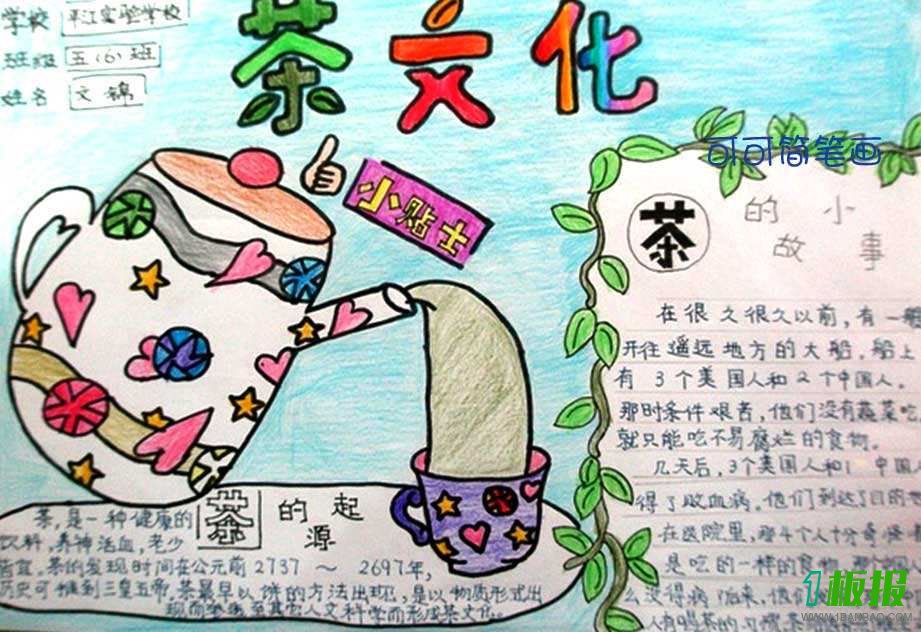 学校 平江实验学校
班级 五(6)班
姓名 文锦
茶文化
小贴士
可可简笔画
茶的小
故事
在很久很久以前,有一艘
开往遥远地方的大船,船上
有3个美国人和2个中国人。
那时条件艰苦,他们没有蔬菜吃
就只能吃不易腐烂的食物。
几天后,3个美国人和1 中国
得了败血病。他们到达了目的
在医院里,那4个人十分奇怪
是吃的一样的食物
么没得病 后来,他们
人有喝茶的习惯
茶的起
源
茶,是一种健康的
饮料,养神活血,老少
皆宜。茶的发现时间在公元前2737 ~ 2697年,
历史可推到三皇五帝。茶最早以饼的方法出现,是以物质形式出
现而 至其它人文科学而形成茶文化。
1板报
WWW.1BANBAO.COM